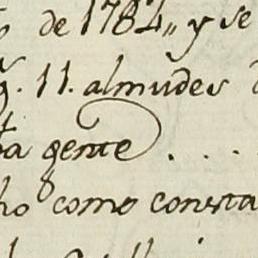 de 1784,, y se
11. almudes
gente . . .
como consta